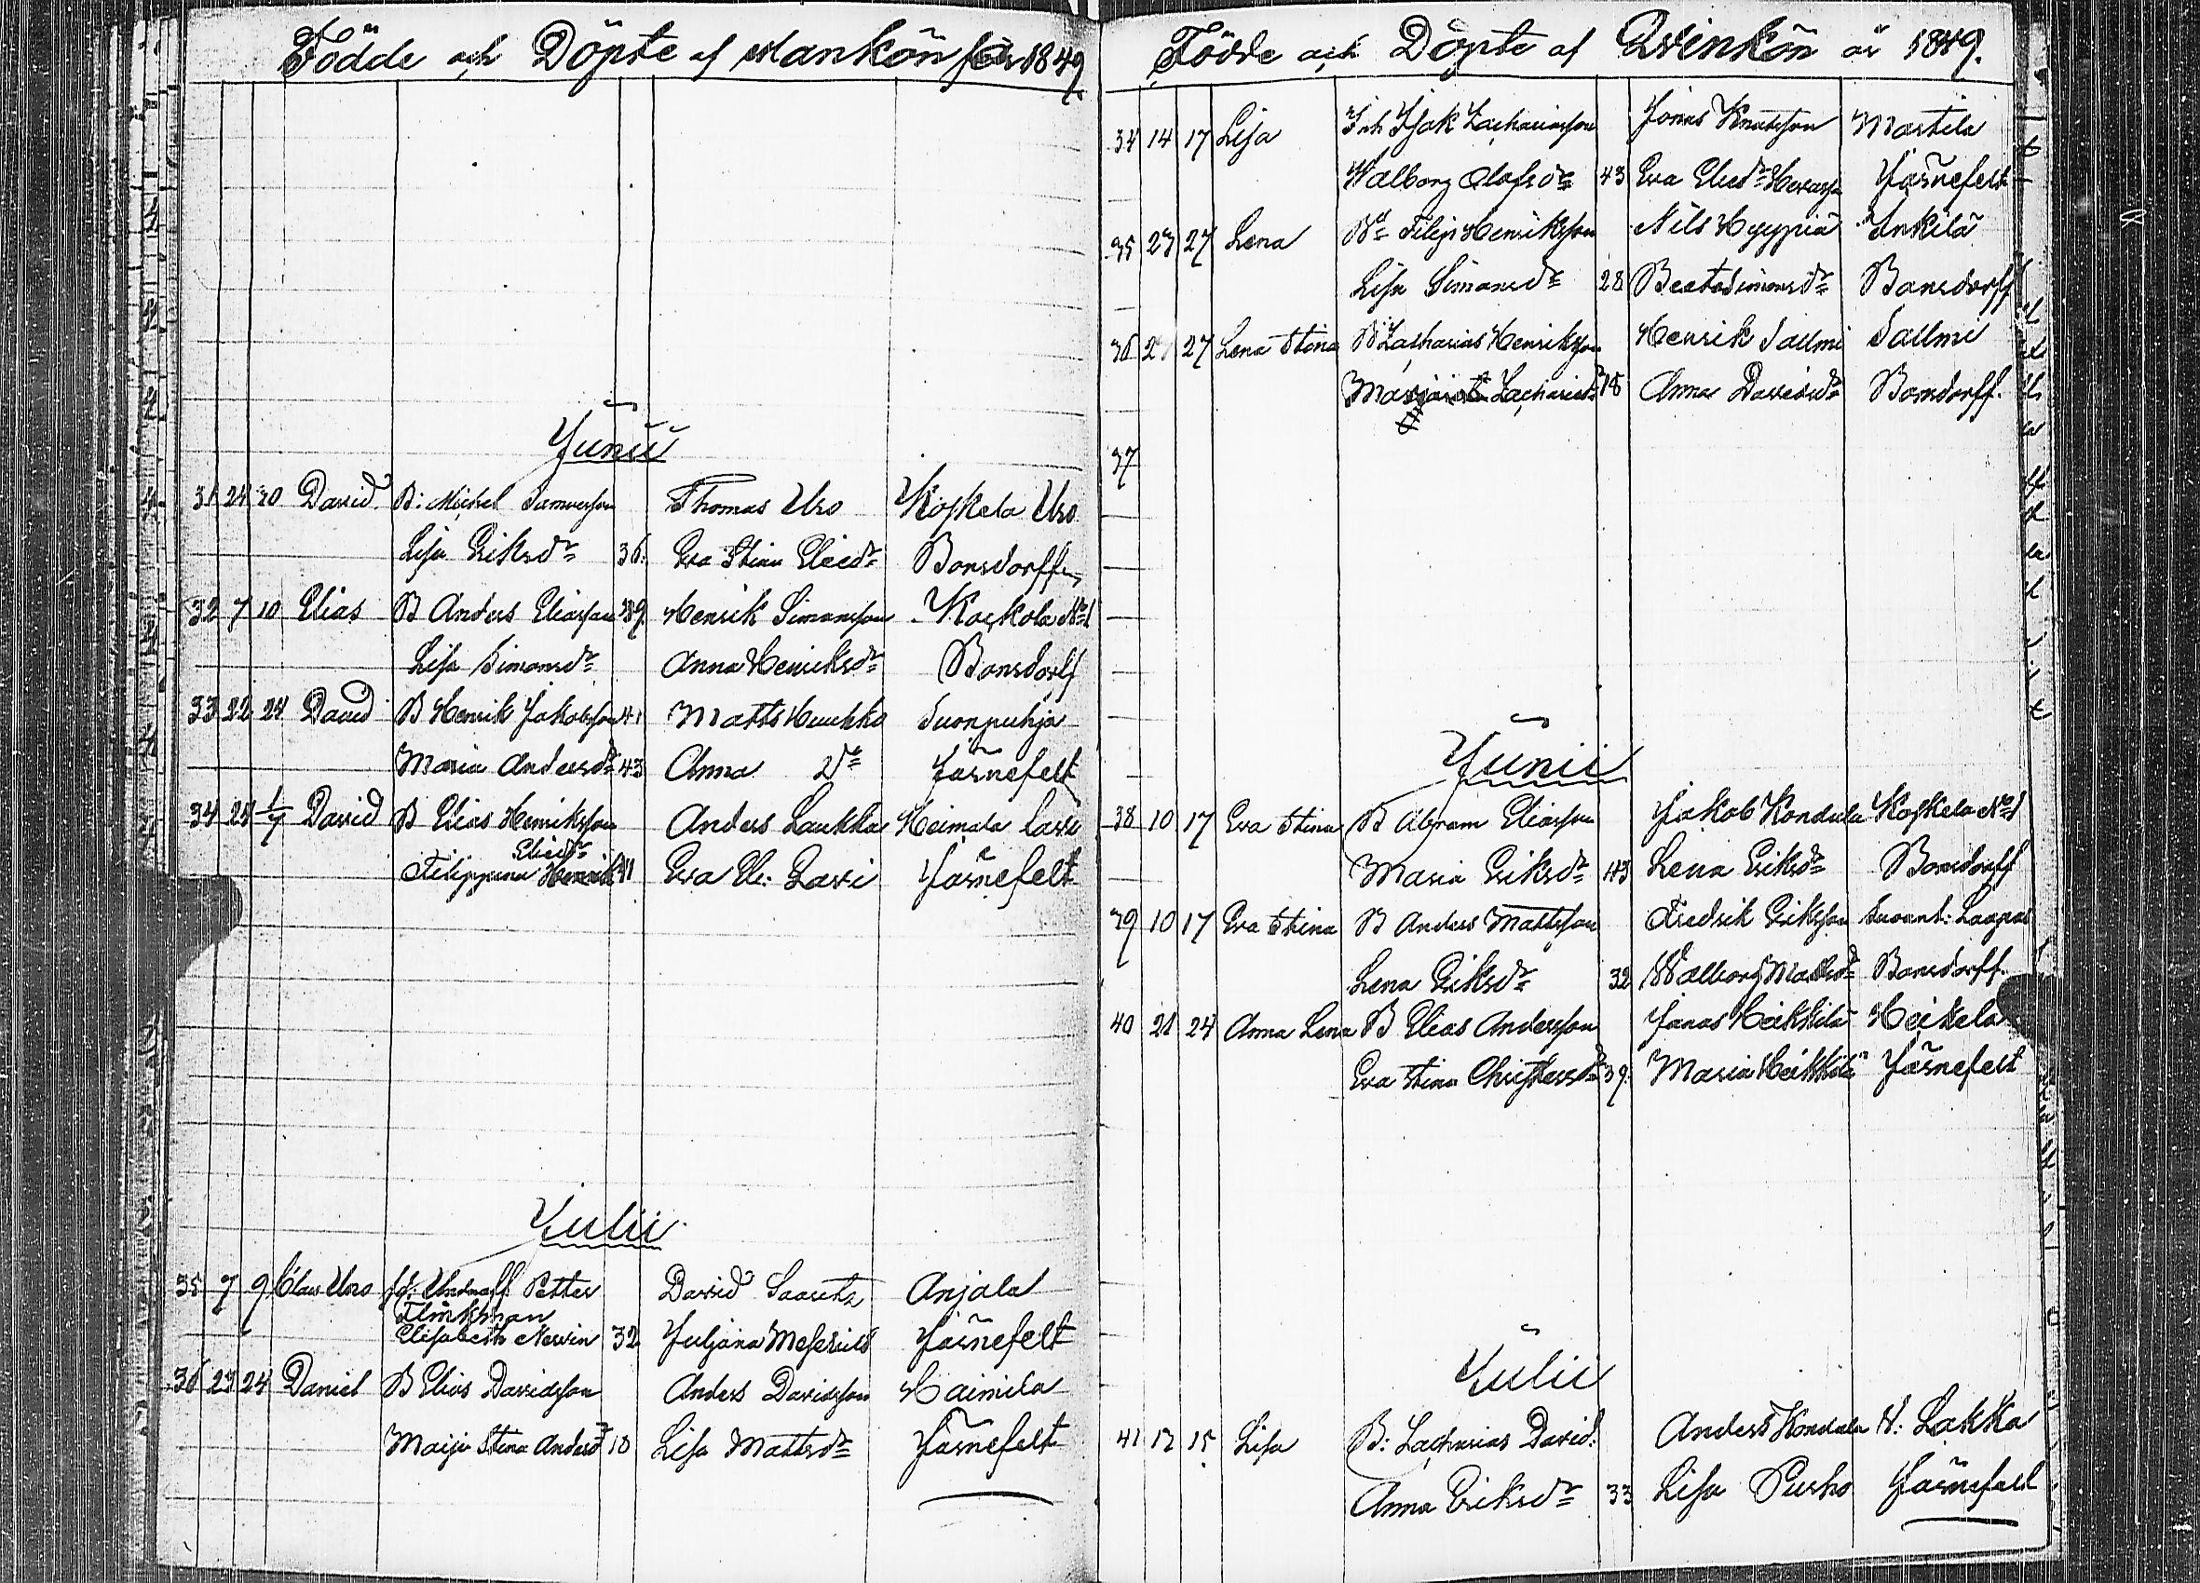 Födde och Döpte af Mankön för 1849
Junii
31 24 30 David B: Michel Samuelsson Thomas Uro Koskela Uro
Lisa Eriksdr 36. Eva Stina Eliedr Bonsdorff
32 7 10 Elias B Anders Eliasson 39 Henrik Simonsson Koskola No 1
Lisa Simonsdr Anna Henriksdr Bonsdorff
33 22 24 David B Henrik Jakobsson 41 Matts Huukka Suonpohja
Maria Andersdr 43 Anna Do Järnefelt
34 24 1/7 David B Elias Henriksson Anders Laukka Heimala Lassi
Eliedr
Filippina 41 Eva El: Lavi Järnefelt
Julii
35 7 9 Claes Uno Petter David Saaretz Anjala
Flinkman
Elisabeth Nevin 32 Juljana Meserius Järnefelt
36 23 24 Daniel B Elias Davidsson Anders Davidsson Haimila
Maija Stina Andersdr 18 Lisa Mattsdr Järnefelt
Födde och Döpte af Qvinkön år 1849.
34 14 17 Lisa Inh Isak Zachariasson Jonas Knutsson Martila
Walborg Olofsdr 43 Eva Eliedr Järnefelt
35 23 27 Lena Bd Filip Henriksson Nils Hyyppiä Inkilä
Lisa Simonsdr 28 Beata Simonsdr Bonsdorff
36 27 Lena Stina B Zacharias Henriksson Henrik Sallmi Sallmi
Zachariedr 18 Anna Davidsdr Bonsdorff.
37
Junii
38 10 17 Eva Stina B Abram Eliasson Jakob Kondula Koskela No 1
Maria Eriksdr 43 Lena Eriksdr Bonsdorff
39 10 17 Eva Stina B Anders Mattsson Fredrik Eriksson
Lena Eriksdr 32 Walborg Mattsdr Bonsdorff.
40 21 24 Anna Lena B Elias Andersson Jonas Heikkilä Heikela
Eva Stina Christersdr 39. Maria Heikkilä Järnefelt
Julii
41 12 15 Lisa B: Zacharias David: Anders Kondula H: Lakka
Anna Eriksdr 33 Lisa Purho Järnefelt